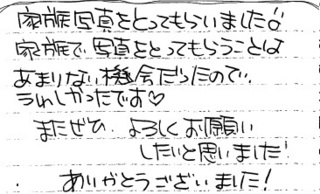 家族写真をとってもらいました♪
家族で、写真をとってもらうことは
あまりない機会だったので、
うれしかったです♡
またぜひ、よろしくお願い
したいと思いました!
ありがとうございました!